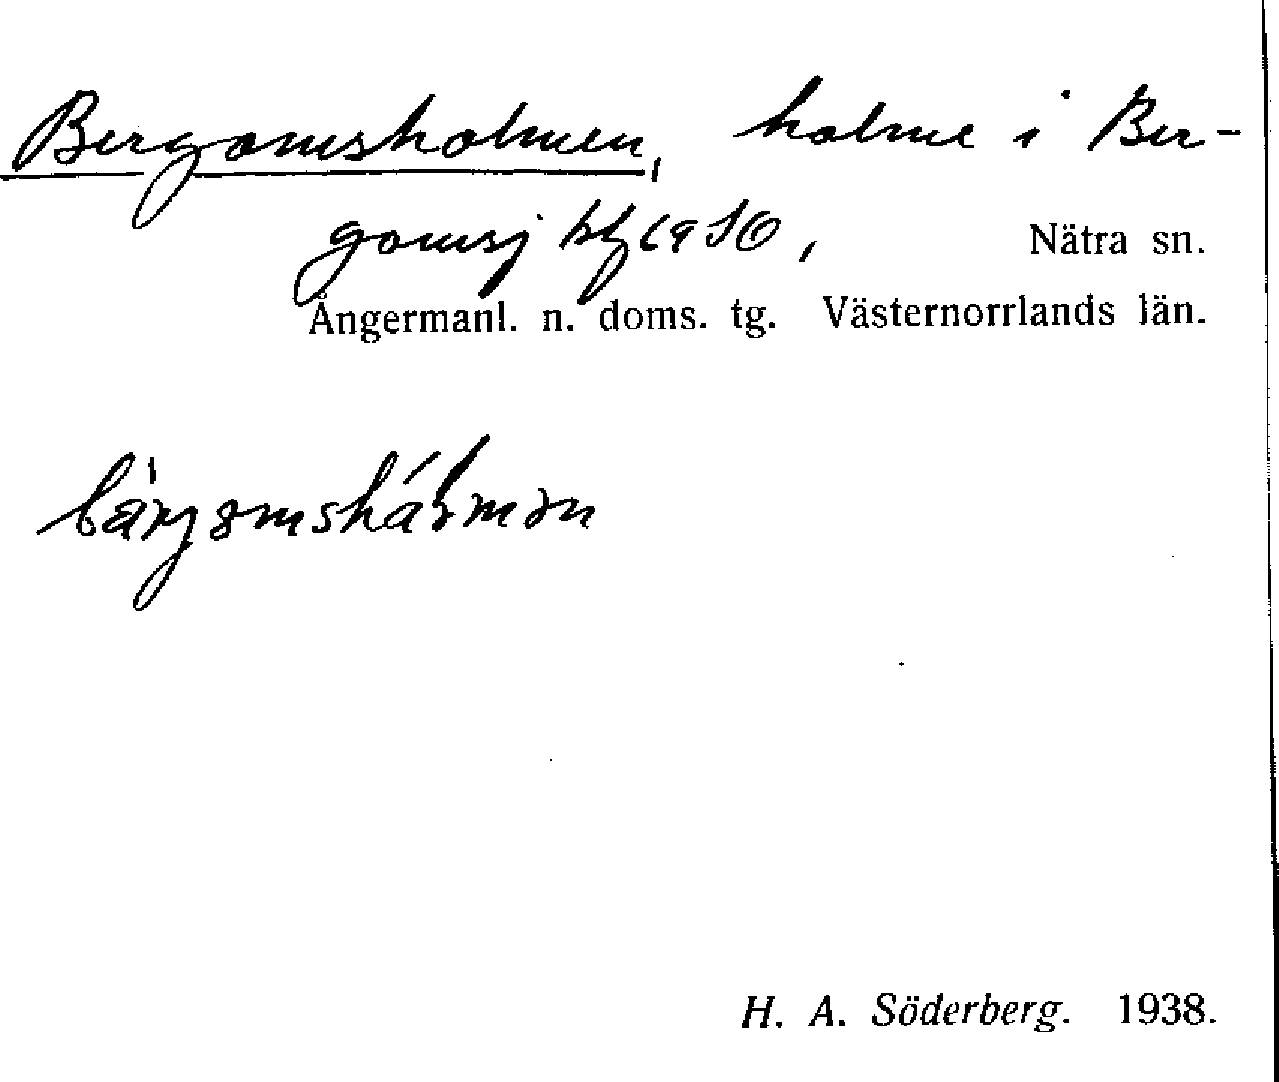 Bergomsholmen, holme i Ber-
gomsj Nätra sn.
Ångermanl. n. doms. tg. Västernorrlands län.
H. A. Söderberg. 1938.